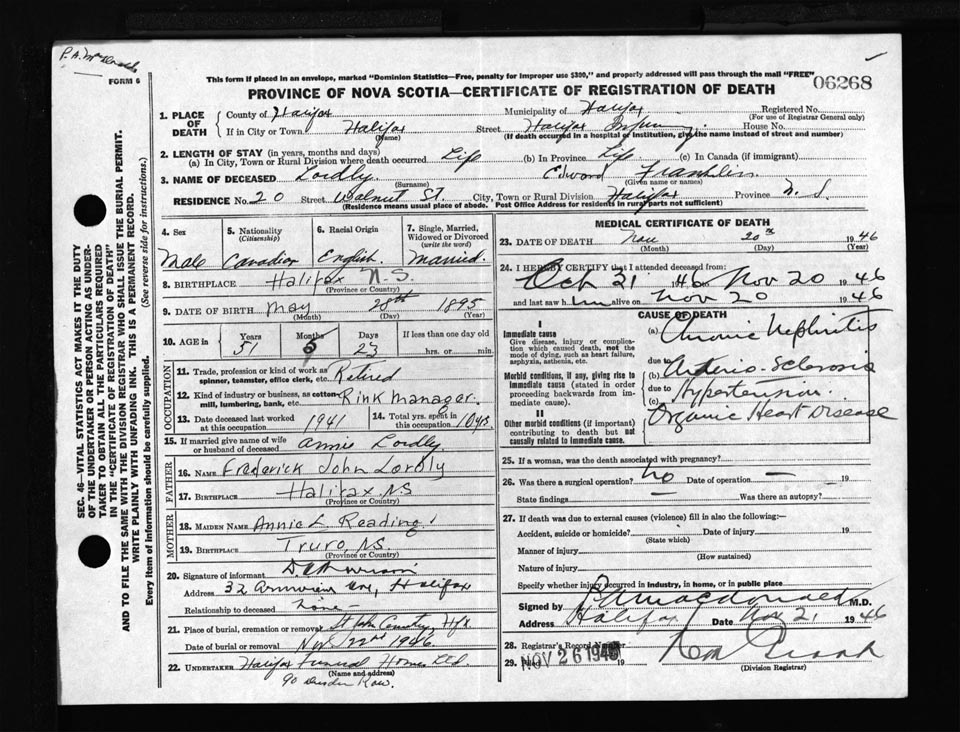 P.A. McDonald
FORM 6
This form if placed in an envelope, marked "Dominion Statistics—Free, penalty for improper use $300," and properly addressed will pass through the mail "FREE"
06268
PROVINCE OF NOVA SCOTIA—CERTIFICATE OF REGISTRATION OF DEATH
SEC. 46—VITAL STATISTICS ACT MAKES IT THE DUTY
OF THE UNDERTAKER OR PERSON ACTING AS UNDER-
TAKER TO OBTAIN ALL THE PARTICULARS REQUIRED
IN THE "CERTIFICATE OF REGISTRATION OF DEATH"
AND TO FILE THE SAME WITH THE DIVISION REGISTRAR WHO SHALL ISSUE THE BURIAL PERMIT.
WRITE PLAINLY WITH UNFADING INK. THIS IS A PERMANENT RECORD.
Every item of information should be carefully supplied. (See reverse side for instructions.)
1. PLACE OF DEATH
County of Halifax Municipality of Halifax Registered No.
(For use of Registrar General only)
If in City or Town Halifax Street Halifax Infirmary House No.
(Name) (If death occurred in a hospital or institution, give the name instead of street and number)
2. LENGTH OF STAY (in years, months and days)
(a) In City, Town or Rural Division where death occurred Life (b) In Province Life (c) In Canada (if immigrant)
3. NAME OF DECEASED Lordly Edward Franklin
(Surname) (Given name or names)
RESIDENCE No. 20 Street Walnut St. City, Town or Rural Division Halifax Province N.S.
(Residence means usual place of abode. Post Office Address for residents in rural parts not sufficient)
4. Sex 5. Nationality (Citizenship) 6. Racial Origin 7. Single, Married, Widowed or Divorced (write the word)
Male Canadian English Married
8. BIRTHPLACE Halifax N.S.
(Province or Country)
9. DATE OF BIRTH May 28th 1895
(Month) (Day) (Year)
10. AGE in Years Months Days If less than one day old
51 5 23 hrs. or min.
OCCUPATION
11. Trade, profession or kind of work as spinner, teamster, office clerk, etc. Retired
12. Kind of industry or business, as cotton-mill, lumbering, bank, etc. Rink Manager.
13. Date deceased last worked at this occupation 1941 14. Total yrs. spent in this occupation 10 yrs.
15. If married give name of wife or husband of deceased Annie Lordly
FATHER
16. NAME Frederick John Lordly
17. BIRTHPLACE Halifax N.S.
(Province or Country)
MOTHER
18. MAIDEN NAME Annie L. Reading
19. BIRTHPLACE Truro, N.S.
(Province or Country)
20. Signature of informant
Address 32 Armview Ave, Halifax
Relationship to deceased None
21. Place of burial, cremation or removal St John Cemetery Hfx
Date of burial or removal Nov. 22nd 1946
22. UNDERTAKER Halifax Funeral Home Ltd
(Name and address)
90 Row.
MEDICAL CERTIFICATE OF DEATH
23. DATE OF DEATH Nov 20th 1946
(Month) (Day) (Year)
24. I HEREBY CERTIFY that I attended deceased from:
Oct 21 1946 Nov 20 1946
and last saw him alive on Nov 20 1946
CAUSE OF DEATH
I
Immediate cause
Give disease, injury or complication which caused death, not the mode of dying, such as heart failure, asphyxia, asthenia, etc.
(a) Chronic Nephritis
due to
Morbid conditions, if any, giving rise to immediate cause (stated in order proceeding backwards from immediate).
(b) Arterio-Sclerosis
due to
(c) Hypertension
II
Other morbid conditions (if important) contributing to death but not causally related to immediate cause.
Organic Heart Disease
25. If a woman, was the death associated with pregnancy?
26. Was there a surgical operation? No Date of operation — 19
State findings — Was there an autopsy?
27. If death was due to external causes (violence) fill in also the following:—
Accident, suicide or homicide? Date of injury 19
(State which)
Manner of injury
(How sustained)
Nature of injury
Specify whether injury occurred in industry, in home, or in public place
Signed by P A Macdonald M.D.
Address Halifax Date Nov 21 1946
28. Registrar's Record Number
29. Filed NOV 26 1946 19
(Division Registrar)